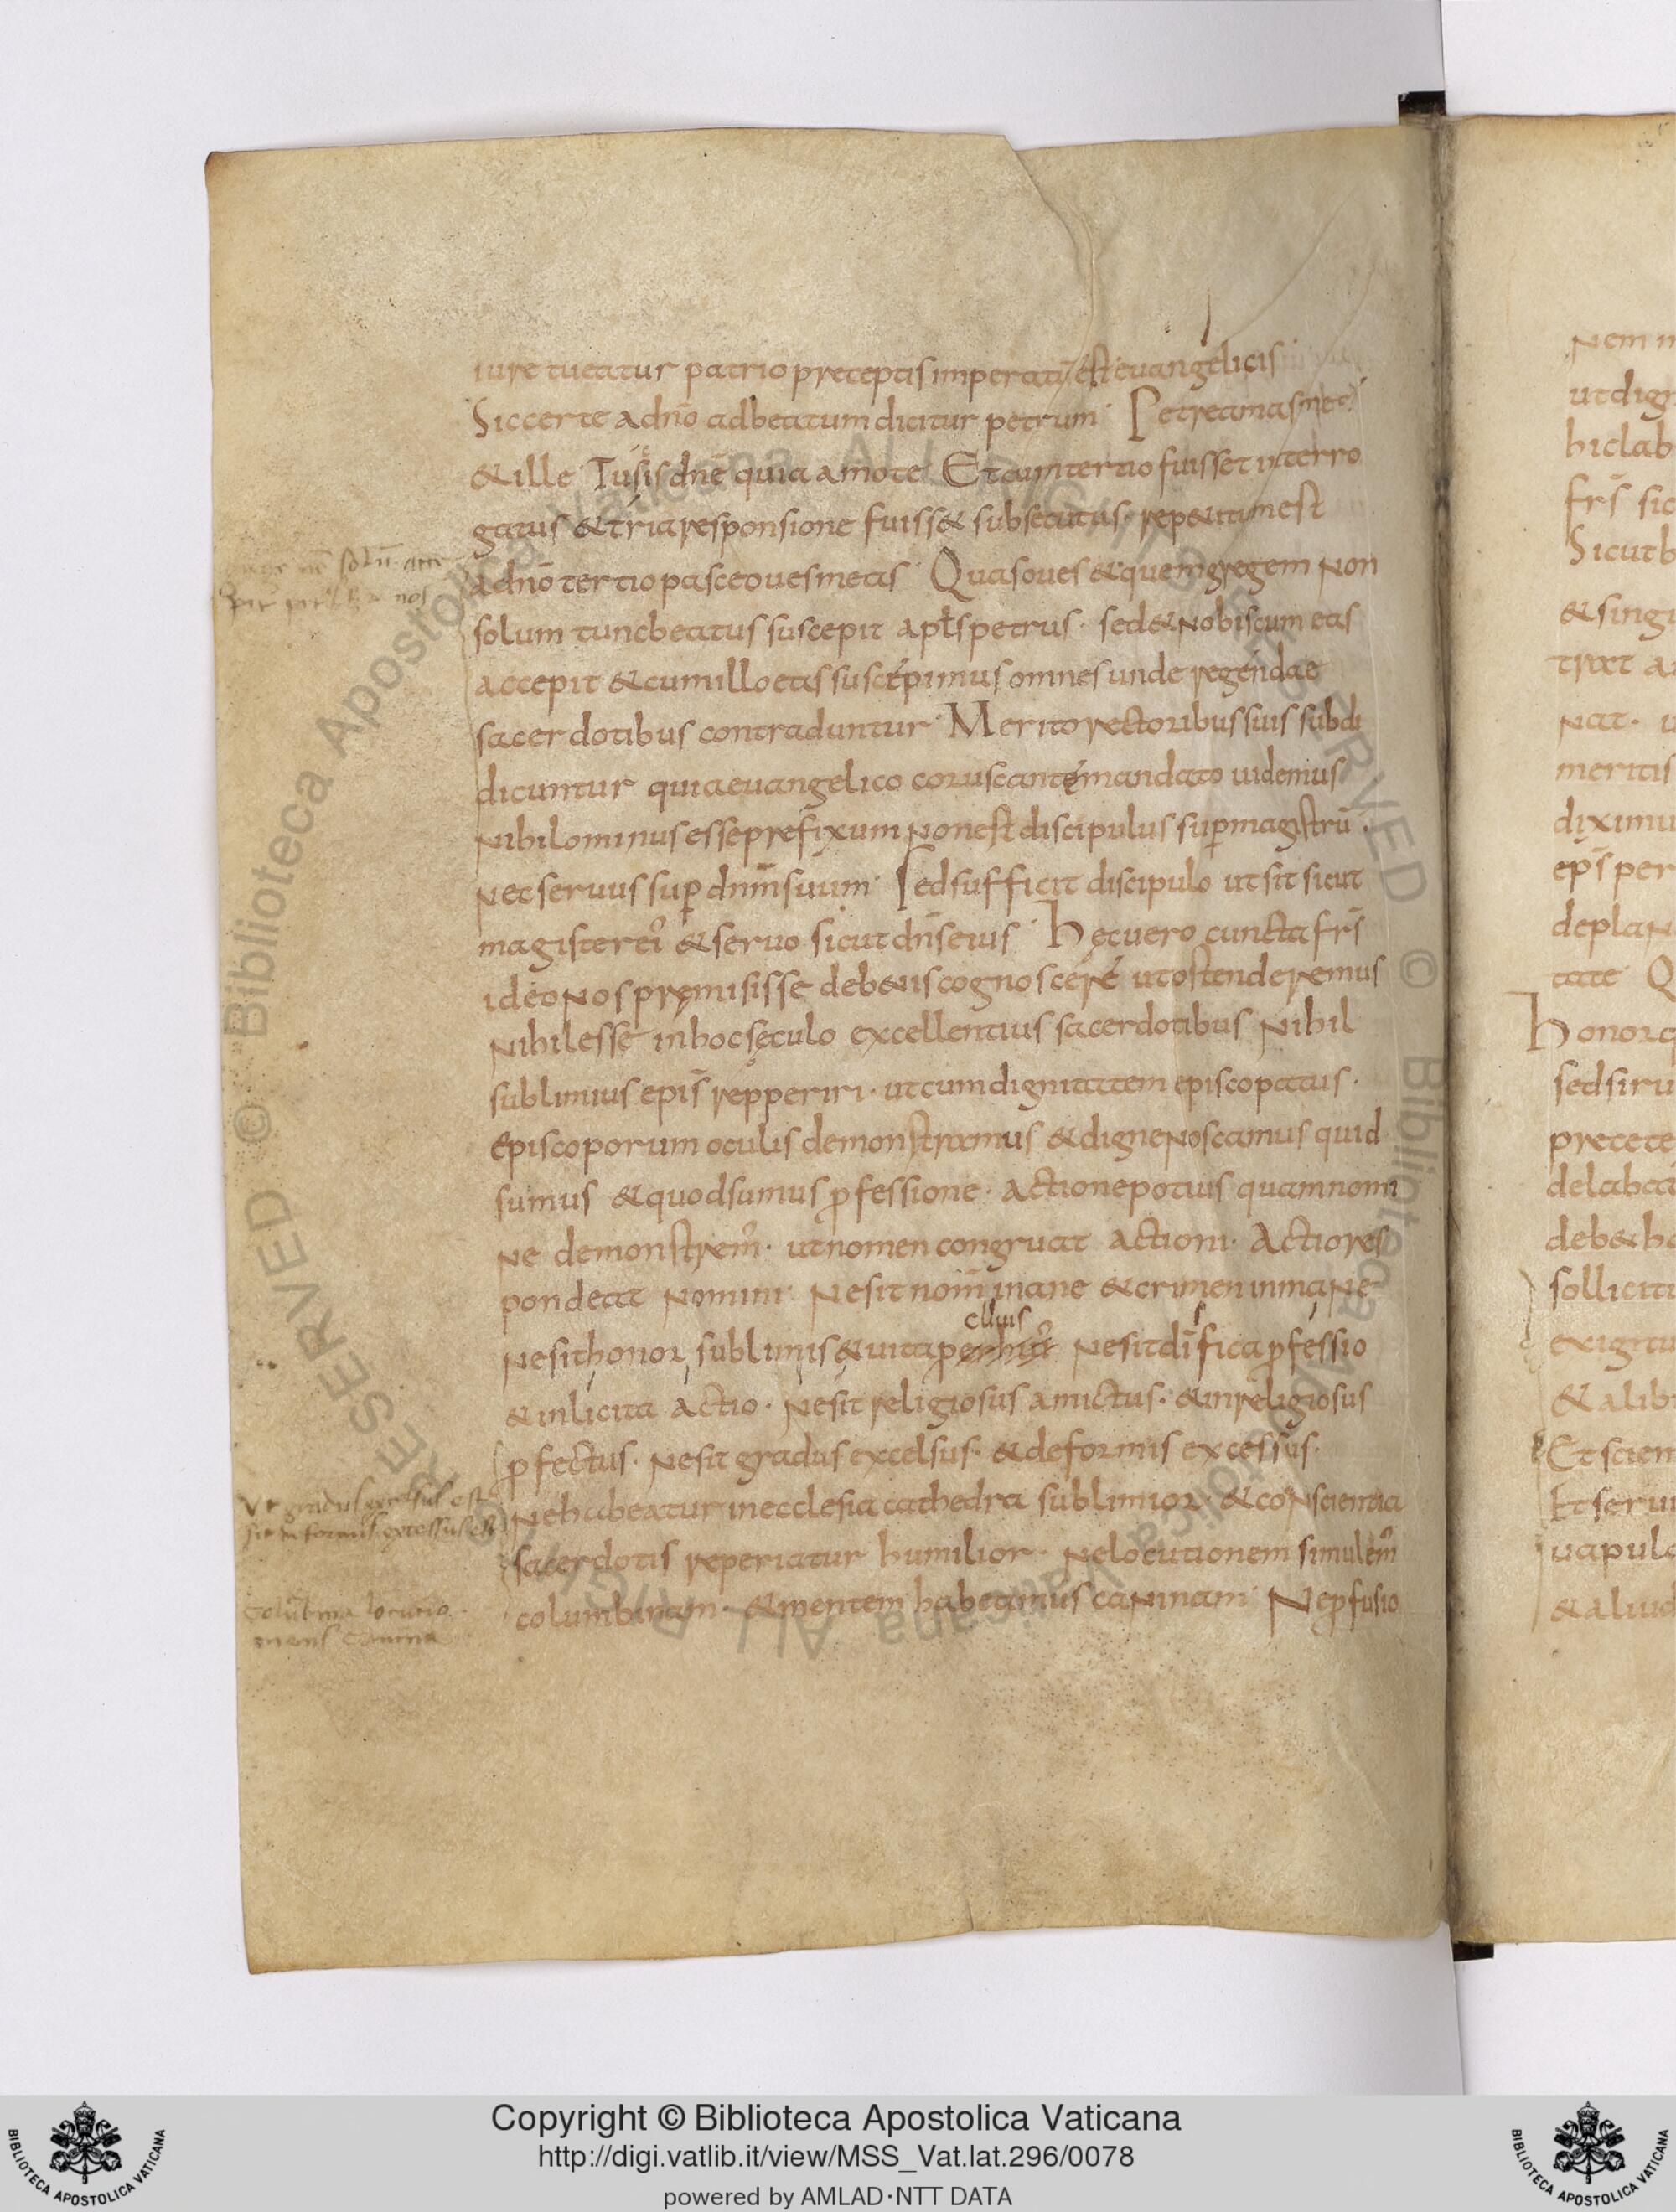 iure tueatur patrio preceptis imperatū est euangelicis
Sic certe a dn̄o ad beatum dicitur petrum· Petre amas me
& ille Tu scis dn̄e quia amo te· Et cum tertio fuisset interro
gatus & tria responsione fuiss& subsecutus· rep&itum est
a dn̄o tertio pasce oues meas· Quas oues & quem gregem non
solum tunc beatus suscepit apl̄s petrus· sed & nobiscum eas
accepit & cum illo eas suscepimus omnes unde regendae
sacerdotibus contraduntur· Merito rectoribus suis subdi
dicuntur quia euangelico coruscante mandato uidemus
nihilominus esse prefixum non est discipulus sup magistrū·
nec seruus sup dnm̄ suum· Sed sufficit discipulo ut sit sicut
magister ei' & seruo sicut dn̄s eius· Hęc uero cuncta frs̄
ideo nos pręmisisse deb&is cognoscere ut ostenderemus
nihil esse in hoc sęculo excellentius sacerdotibus nihil
sublimius epis̄ repperiri· ut cum dignitatem episcopatus·
episcoporum oculis demonstramus & digne noscamus quid
sumus & quod sumus ꝓfessione· actione potius quam nomi
ne demonstrem'· ut nomen congruat actioni· Actio res
pondeat nomini· Ne sit nom̄ inane & crimen inmane
cliuis
Ne sit honor sublimis & uita Ne sit di'fica ꝓfessio
& inlicita actio· Ne sit religiosus amictus· & inreligiosus
ꝓfectus· Ne sit gradus excelsus· & deformis excessus·
Ne habeatur in ecclesia cathedra sublimior· & conscientia
sacerdotis reperiatur humilior· Ne locutionem simulem'
columbinam· & mentem habeamus caninam· Ne ꝓfusio
Vt gradus excelsus est
sit deformis excessus est
Colubina locutio·
mens canina
nem
ut dig
hic lab
frs̄ sic
Sicut
& sing
nat·
meritis
diximu
epis̄ per
tate· Q
Honor
sed si
precete
delaba
deb&
solliciti
exigitu
& alibi
Et scien
Et seru
uapula
& aliud
RESERVED © Biblioteca Apostolica Vaticana ALL RIGHTS RESERVED © Biblioteca Apostolica Vaticana ALL RIGHTS
Copyright © Biblioteca Apostolica Vaticana
http://digi.vatlib.it/view/MSS_Vat.lat.296/0078
powered by AMLAD·NTT DATA
BIBLIOTECA APOSTOLICA VATICANA
BIBLIOTECA APOSTOLICA VATICANA